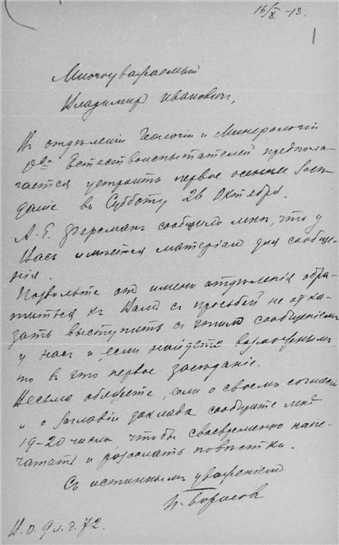 16/X -13.
Многоуважаемый
Владимир Иванович,
Въ отдѣленіи Геологіи и Минералогіи
О-ва Естествоиспытателей предпола-
гается устроить первое осеннее засѣ-
даніе въ Субботу 26 Октября.
А. Е. Ферсманъ сообщилъ мнѣ, что у
Васъ имѣется матеріалъ для сообще-
нія.
Позвольте отъ имени отдѣленія обра-
титься къ Вамъ съ просьбой не отка-
зать выступить съ этимъ сообщеніемъ
у насъ и если найдете возможнымъ,
то въ это первое засѣданіе.
Весьма обяжете, если о своемъ согласіи
и о заглавіи доклада сообщите мнѣ
19-20 числа, чтобы своевременно напе-
чатать и разослать повѣстки.
Съ истиннымъ уваженіемъ
П. Борисовъ
В. О. 9 л. д.